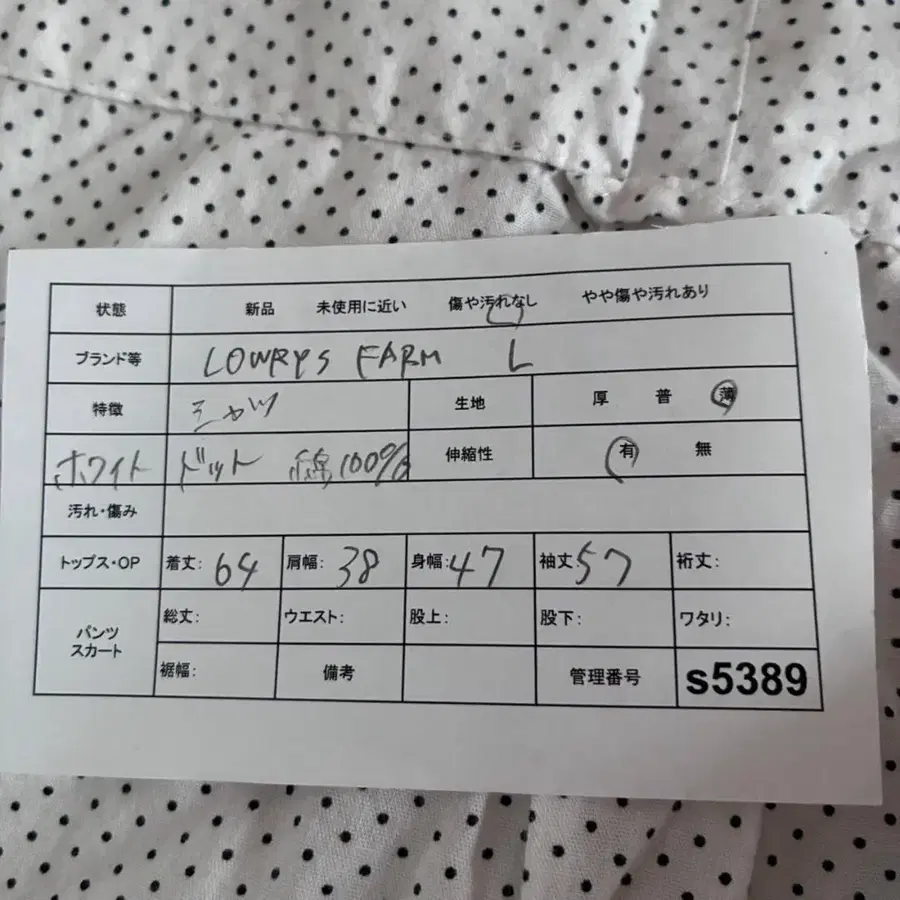 状態 新品 未使用に近い 傷や汚れなし やや傷や汚れあり
ブランド等 LOWRYS FARM L
特徴 シャツ 生地 厚 普 薄
ホワイト ドット 綿100% 伸縮性 有 無
汚れ・傷み
トップス・OP 着丈: 64 肩幅: 38 身幅: 47 袖丈 57 裄丈:
パンツ スカート 総丈: ウエスト: 股上: 股下: ワタリ:
裾幅: 備考 管理番号 s5389